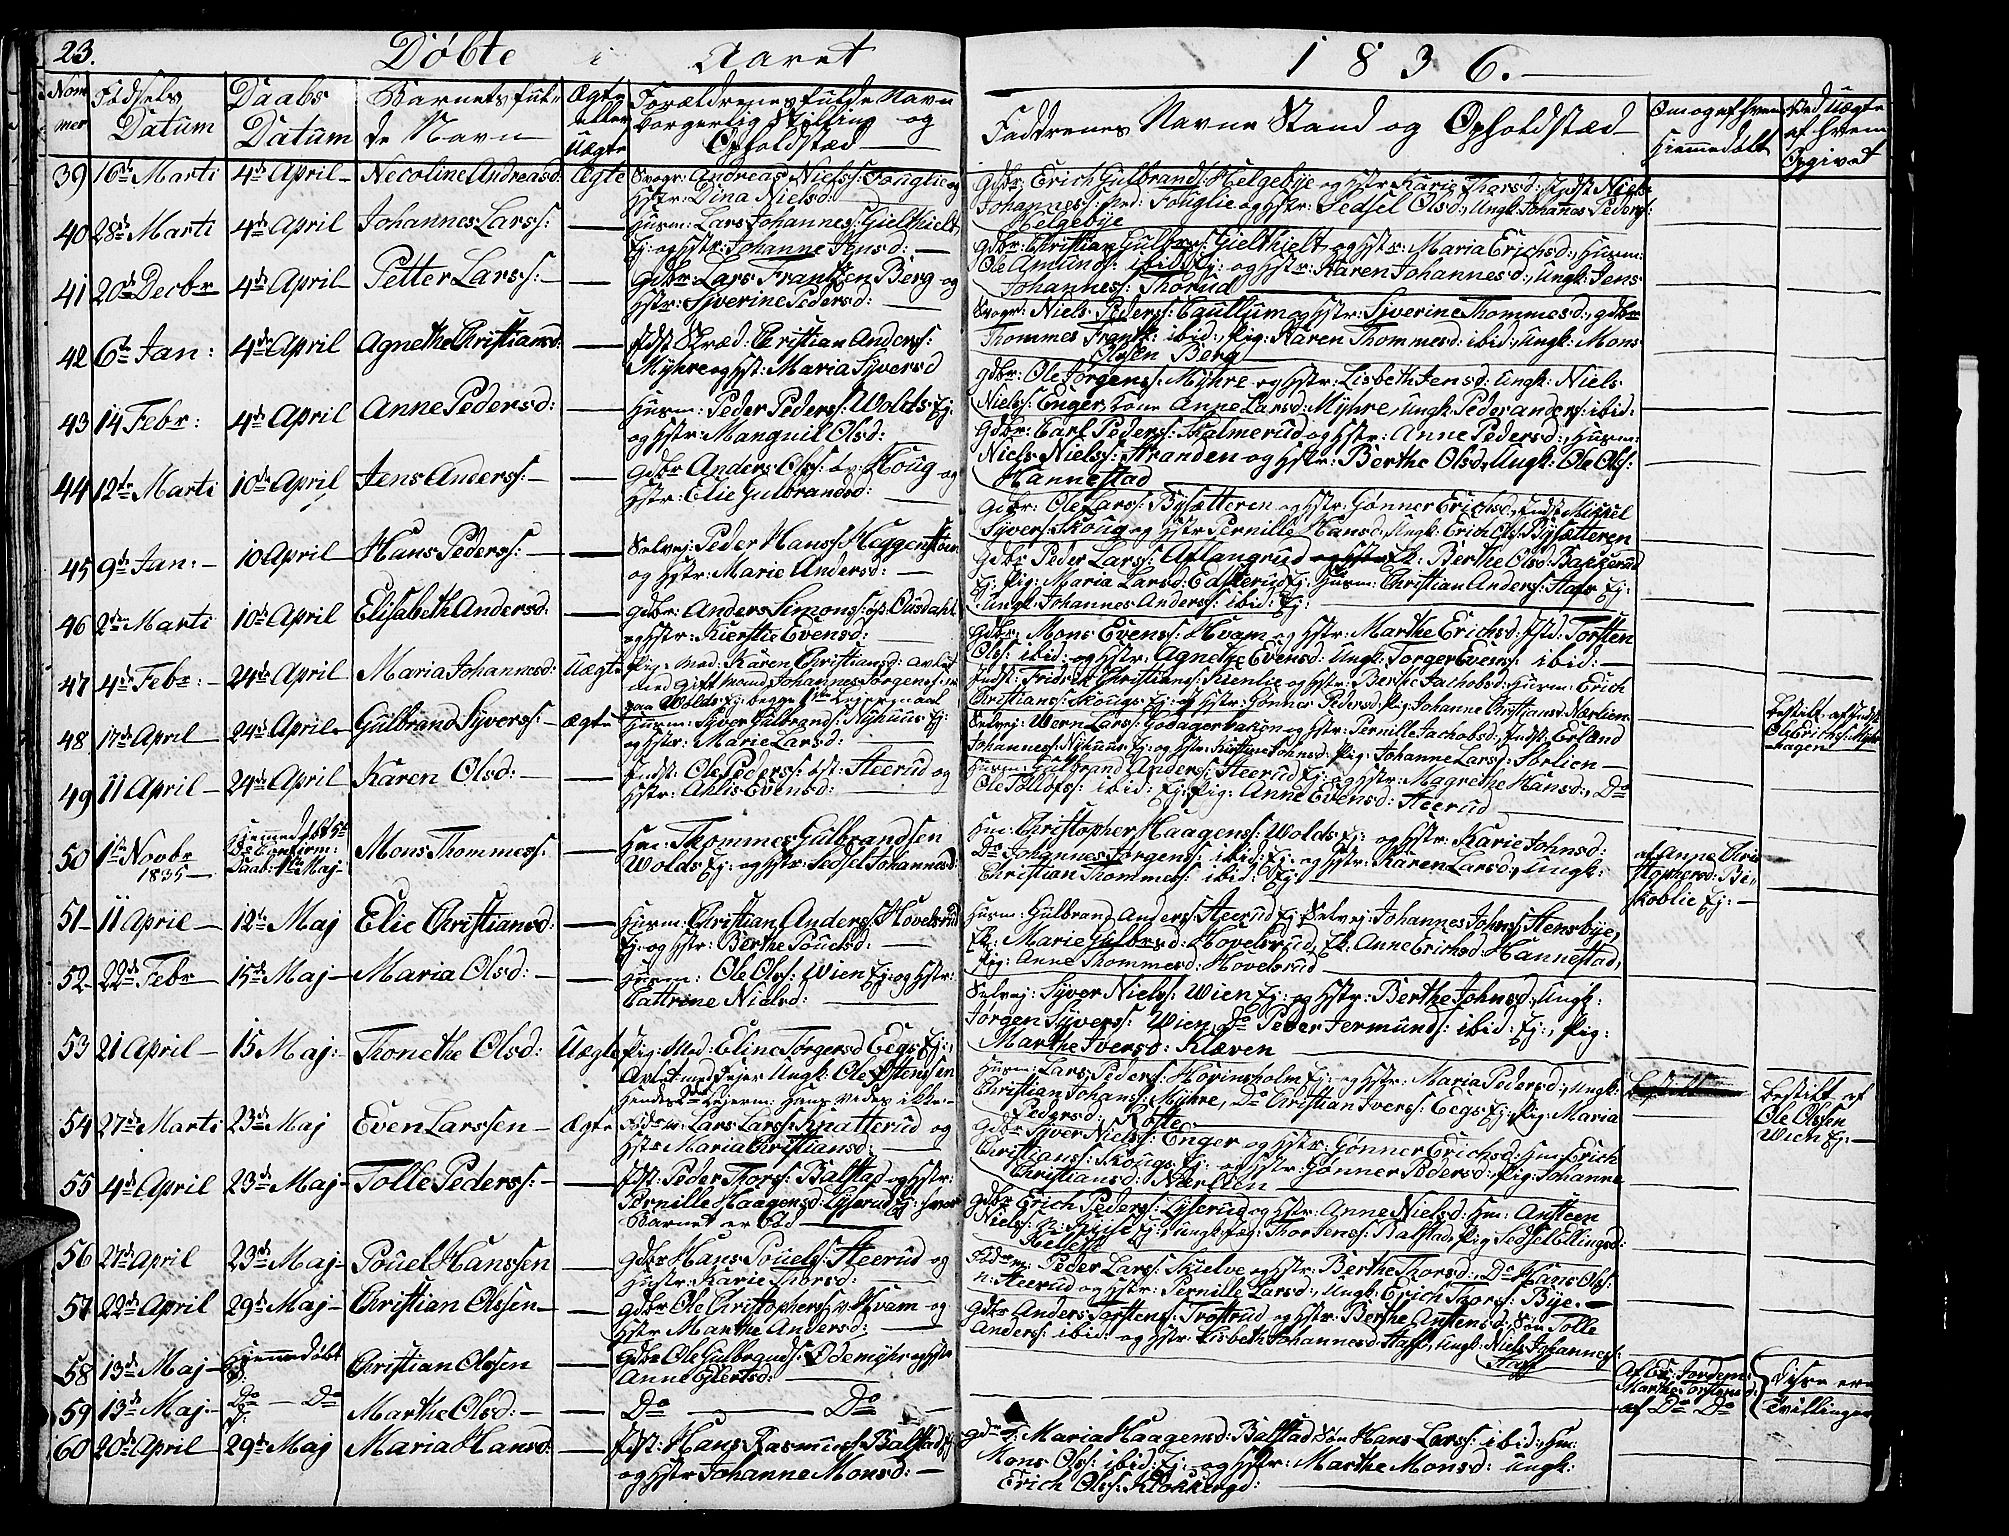 23.
Døbte i Aaret
1836.
Nom mer
Fødsels Datum
Daabs Datum
Barnets fulde Navn
Ægte eller Uægte
Forældrenes fulde Navn borgerlig Stilling og Opholdstæd
Faddrenes Navne Stand og Opholdstæd
Om og af hvem Hiemmedøbt
Ved Uægte af hvem Opgivet
39 16de Marti 4de April Necoline Andreasd: Ægte Andreas Nielss: Fouglie og
Hstr: Dina Nielsd:
Gdbr: Erich Gulbrands: Helgebye og Hstr: Karie Thorsd: Indst Niels
Johanness: Fouglie og Hstr: Sedsel Olsd:, Ungk: Johanes Peders:
Helgebye
40 28de Marti 4de April Johannes Larss:
Husm: Lars Johannes: Gielthielt
Ej: og Hstr: Johanne Jensd:
Gdbr: Christian Gulbrs: Gielthielt og Hstr: Maria Erichsd:, Husm:
Ole Amunds: ibid: Ej: og Hstr: Karen Johannesd:, Ungk: Jens
Johanness: Thorud
41 20de Decbr 4de April Petter Larss:
Gdbr: Lars Frantzen Berg og
Hstr: Syverine Pedersd:
Niels Peders: Caullum og Hstr: Syverine Thommesd:, gdbr
Thommes Frantz: ibid:, Pig: Karen Thommesd: ibid:, Ungk: Mons
Olsen Berg
42 6te Jan: 4de April Agnethe Christiansd:
Christian Anderss:
Myhre og Hst: Maria Syversd
Gdbr: Ole Jørgens: Myhre og Hstr: Lisbeth Jensd: Ungk: Niels
Nielss: Enger, Anne Larsd: Myhre, Ungk: Peder Anders: ibid:
43 14 Febr: 4de April Anne Pedersd:
Husm: Peder Peders: Wolds Ej:
og Hstr: Manguil Olsd:
Gdbr: Carl Peders: Skalmerud og Hstr: Anne Pedersd:, Husm:
Niels Nielss: Stranden og Hstr: Berthe Olsd:, Ungk: Ole Ols:
Hannestad
44 12te Marti 10de April Jens Anderss:
Gdbr Anders Olss: Houg og
Hstr: Elie Gulbrandsd:
Gdbr: Ole Larss: Bysætteren og Hstr: Gønner Erichsd:, Indst Mikkel
Syvers: Skoug og Hstr Pernille Hansd:, Ungk: Erich Ols: Bysætteren
45 9de Jan: 10 April Hans Pederss:
Selvej: Peder Hanss: Heggenstøen
og Hstr: Marie Andersd:
Gdbr Peder Larss: Aslangrud Ek: Berthe Olsd: Bakkerud
Ej: Pig: Maria Larsd: Edskerud Ej: Husm: Christian Anders: Ej:
Ungk: Johannes Anderss: ibid: Ej:
46 2de Marti 10de April Elisabeth Andersd:
Gdbr: Anders Simons: Ousdahl
og Hstr: Kierstie Evensd:
Gdbr: Mons Evens: Hvam og Hstr: Marthe Erichsd: Torsten
Ols: ibid: og Hstr: Agnethe Evensd: Ungk: Torger Evens: ibid:
47 4de Febr: 24de April Maria Johannesd: Uægte
Pig: Mod: Karen Christiansd: Avlet
med Gift Mand Johannes Jørgens:
paa Wolds Ej: begge 1ste Leiermaal
Indst: Fridrik Christians: Kienlie og Hstr: Berthe Jachobsd: Husm: Erich
Christians: Skougs Ej: og Hstr: Gønner Pedersd: Pig: Johanne Christiansd: Nærlien
48 17de April 24de April Gulbrand Syvers: Ægte
Husm: Syver Gulbrands: Nyhuus Ej:
og Hstr: Marie Larsd:
Selvej: Wern Lars: Godagerbakken og Hstr: Pernille Jachobsd:, Indst: Erland
Johannes: Nyhuus Ej: og Hstr: Kirstine Johnsd: Pig: Johanne Larss: Sørlien
49 11 April 24de April Karen Olsd:
Indst: Ole Peders: Steerud og
Hstr: Ahlis Evensd:
Husm: Gulbrand Anders: Steerud Ej: og Hstr: Magrethe Hansd:, Do
Ole Tollofs: ibid: Ej: Pig: Anne Evensd: Steerud
50 1ste Novbr 1835 Hiemmedøbt Confirm: Daab: 1ste Maj Mons Thommess:
Hm: Thommes Gulbrandsen
Wolds Ej: og Hstr: Sedsel Johannesd:
Hm: Christopher Haagens: Wolds Ej: og Hstr: Karie Johnsd:
Do Johannes Jørgens: ibid: Ej: og Hstr: Karen Larsd:, Ungk:
Christian Thommess: ibid: Ej:
af Anne Christophersd: Biskoblie Ej:
51 11 April 12te Maj Elie Christiansd:
Husm: Christian Anders: Hovelsrud
Ej: og Hstr: Berthe Pouelsd:
Husm: Gulbrand Anders: Steerud Ej: Selvej: Johannes Johns: Stensbye,
Ek: Marie Gulbrsd: Hovelsrud, Ek: Anne Erichsd: Hannestad,
Pig: Anne Thommesd: Hovelsrud
52 22de Febr 15de Maj Maria Olsd:
Husm: Ole Olss: Wien Ej: og Hstr:
Cattrine Nielsd:
Selvej: Syver Niels: Wien Ej: og Hstr: Berthe Johnsd:, Ungk:
Jørgen Syvers: Wien, Do Peder Jermunds: ibid: Ej:, Pig:
Marthe Iversd: Klæven
53 21 April 15 Maj: Thonethe Olsd: Uægte
Pig: Mod: Eline Torgersd Eegs Ej:,
Avlet med Ungk: Ole Ostenssen
Hendes Lejerm: Hans vides ikke.
Husm: Lars Peders: Hovinsholm Ej: og Hstr: Maria Pedersd:, Ungk:
Christian Johans: Myhre, Do Christian Ivers: Eegs Ej: Pig: Maria
Pedersd: Tofte
bestilt af
Ole Olssen
Wien Ej:
54 27de Marti 23de Maj Even Larssen Ægte
Lars Larss: Knatterud og
Hstr Maria Christiansd:
Gdbr Syver Niels: Enger og Hstr: Gønner Erichsd: Hm: Erich
Christians: Skougs Ej: og Hstr: Gønner Pedersd: Pig: Johanne
Christiansd: Nærlien
55 4de April 23de Maj Tolle Pederss:
Peder Thors: Balstad og Hstr:
Pernille Haagensd: Lyserud Ej: hvor
Barnet er død
Gdbr Erich Peders: Lyserud og Hstr: Anne Nielsd: Hm: Ansteen
Niels: Ej: Ungk: Thor Jenes: Balstad, Pig: Sedsel Ellingsd:
56 27de April 23de Maj Pouel Hanssen
Gdbr Hans Pouels: Steerud og
Hustr: Karie Thorsd:
Peder Larss: Skielve og Hstr: Berthe Thorsd:, Do Hans Ols:
n: Steerud og Hstr: Pernille Larsd:, Ungk: Erich Thors: Bye.
57 22de April 29de Maj Christian Olssen
Gdbr Ole Christophers: v: Hvam og
Hstr Marthe Andersd:
Gdbr Anders Torstens: Trostrud og Hstr: Berthe Anstensd: Søn Tolle
Anders: ibid: og Hstr: Lisbeth Johannesd: Ungk: Niels Johannes:
58 13de Maj Hiemmedøbt Christian Olssen
Gdbr Ole Gulbrands: Ødemyhr og Hstr
Anne Eilertsd:
Marthe Torstensd:
Disse ere Tvillinger
59 13de Maj Do Do Marthe Olsd: Do Do
af Do Do
60 20de April 29de Maj Maria Hansd:
Hans Rasmuss: Balstad Ej:
og Hstr Johanne Monsd:
Maria Haagensd: Balstad, Søn Hans Larss: ibid:, Hm:
Mons Ols: ibid: Ej: og Hstr: Marthe Monsd: Ungk:
Erich Ols: Klokkergd: